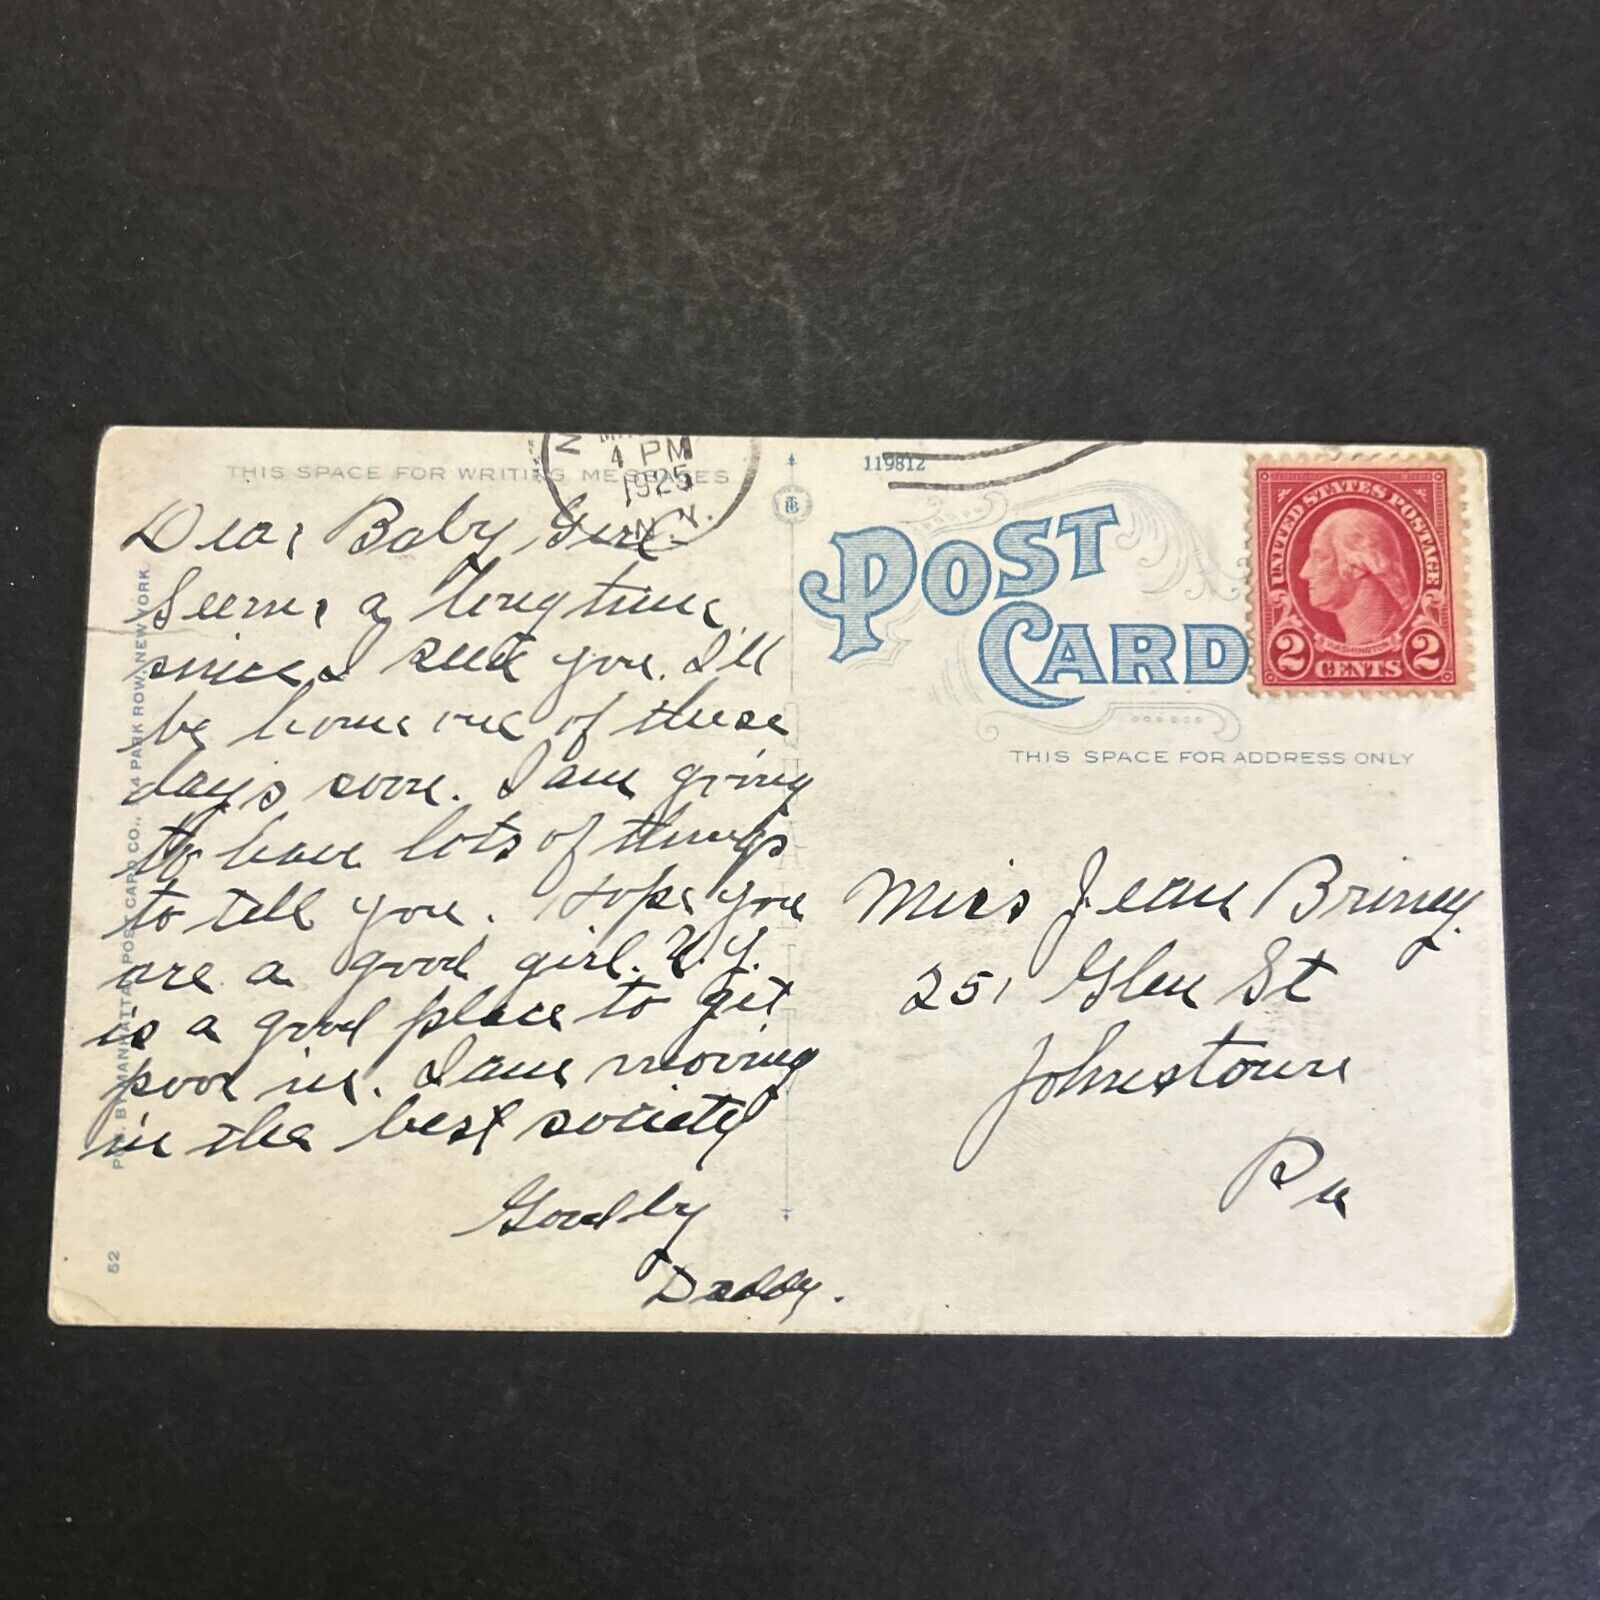 THIS SPACE FOR WRITING MESSAGES
4 PM
1925
N.Y.
119812
POST
CARD
UNITED STATES POSTAGE
WASHINGTON
2 CENTS 2
THIS SPACE FOR ADDRESS ONLY
Dear Baby Girl
Seems a long time
since I seen you. I'll
be home one of these
days soon. I am going
to have lots of things
to tell you. Hope you
are a good girl. N.Y.
is a good place to get
poor in. I am moving
in the best society
Goodby
Daddy.
Miss Jean Briney.
251 Glen St
Johnstown
Pa
PUB. BY MANHATTAN POST CARD CO., PARK ROW, NEW YORK.
52